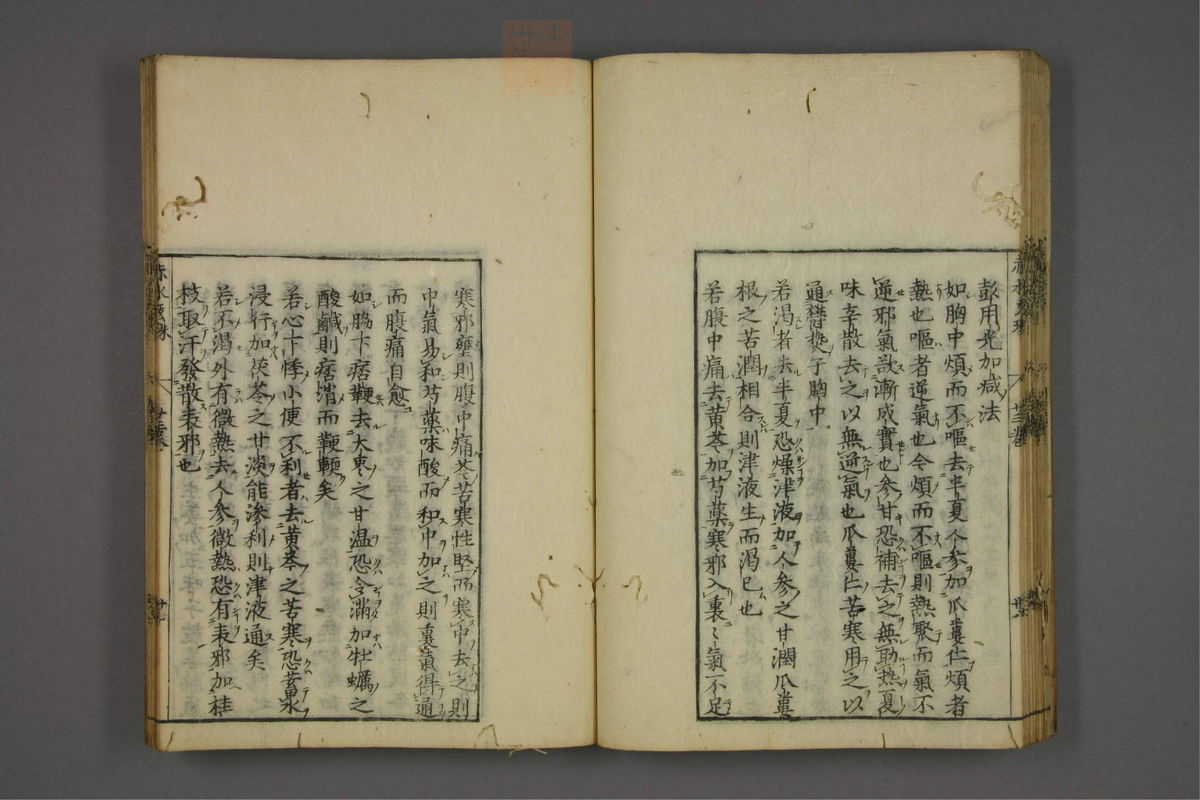 彭用光加減法
如胸中煩而不嘔去半夏人参加瓜蔞仁煩者
熱也嘔者逆氣也今煩而不嘔則熱聚而氣不
逆邪氣欲漸成實也参甘恐補去之無助熱夏
味辛散去之以無逆氣也瓜蔞仁苦寒用之以
通欝熱于胸中
若渇者去半夏恐燥津液加人参之甘潤瓜蔞
根之苦潤相合則津液生而渇已也
若腹中痛去黄芩加芍藥寒邪入裏〻氣不足
寒邪壅則腹中痛芩苦寒性堅而寒中去之則
中氣易和芍藥味酸而和中加之則裏氣得通
而腹痛自愈
如脇下痞鞕去大枣之甘温恐令滿加牡蠣之
酸鹹則痞消而鞕軟矣
若心下悸小便不利者去黄芩之苦寒恐畜水
浸行加茯苓之甘淡能滲利則津液通矣
若不渇外有微熱去人参微熱恐有表邪加桂
枝取汗發散表邪也
赤水玄珠